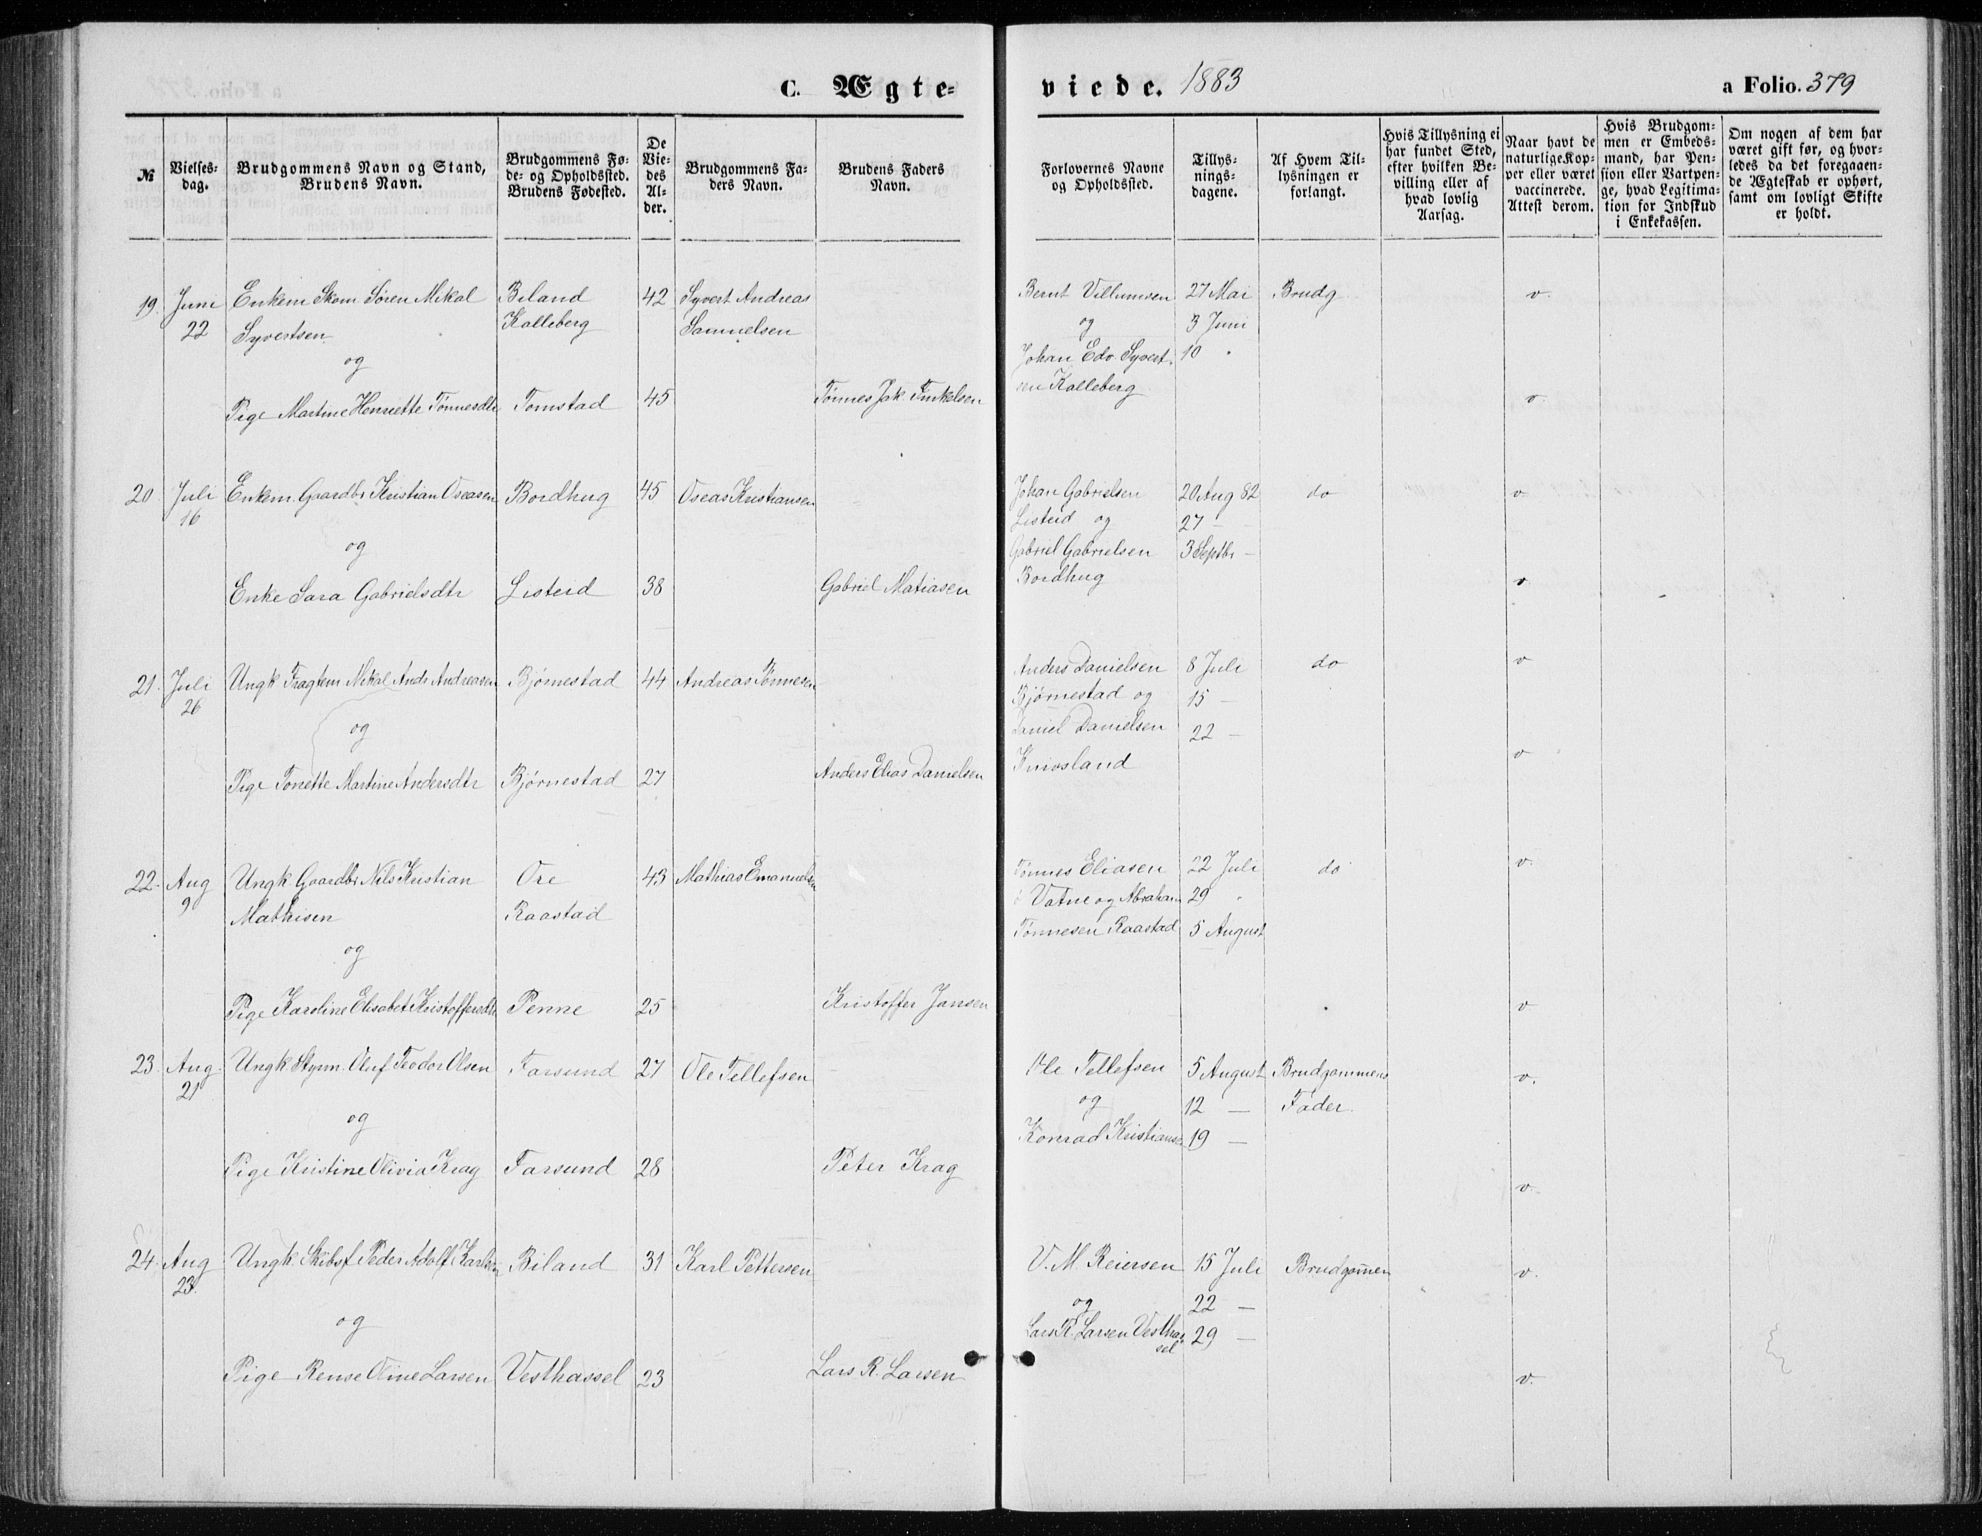 C. Ægte-
viede. 1883
a Folio. 379
№
Vielses-
dag.
Brudgommens Navn og Stand,
Brudens Navn.
Brudgommens Fø-
de- og Opholdssted.
Brudens Fødested.
De
Vie-
des
Al-
der.
Brudgommens Fa-
ders Navn.
Brudens Faders
Navn.
Forlovernes Navne
og Opholdssted.
Tillys-
nings-
dagene.
Af Hvem Til-
lysningen er
forlangt.
Hvis Tillysning ei
har fundet Sted,
efter hvilken Be-
villing eller af
hvad lovlig
Aarsag.
Naar havt de
naturlige Kop-
per eller været
vaccinerede.
Attest derom.
Hvis Brudgom-
men er Embeds-
mand, har Pen-
sion eller Vartpen-
ge, hvad Legitima-
tion for Indskud
i Enkekassen.
Om nogen af dem har
været gift før, og hvor-
ledes da det foregaaen-
de Ægteskab er ophørt,
samt om lovligt Skifte
er holdt.
19. Juni Enkem Skom Søren Mikal Biland 42 Syvert Andreas Bernt Villumsen 27 Mai Brudg. v.
22 Syvertsen Kalleberg Samuelsen og 3 Juni
og Johan Edv. Syvert- 10 "
sen Kalleberg
Pige Martine Henriette Tønnesdtr Tomstad 45 Tønnes Jak. Finkelsen v.
20 Juli Enkem. Gaardbr Kristian Oseasen Bordhug 45 Oseas Kristiansen Johan Gabrielsen 20 Aug 82 do v
16 Listeid og 27 —
og Gabriel Gabrielsen 3 Septbr —
Enke Sara Gabrielsdtr Listeid 38 Gabriel Matiasen Bordhug v
21. Juli Ungk Fragtem Mikal Andr Andreasen Bjørnestad 44 Andreas Tønnesen Anders Danielsen 8 Juli do v
26 Bjørnestad og 15 —
og Daniel Danielsen 22 —
Pige Tonette Martine Andersdtr Bjørnestad 27 Anders Elias Danielsen Knivsland v
22. Aug Ungk Gaardbr Nils Kristian Ore 43 Mathias Emanuelsen Tønnes Eliasen 22 Juli do v.
9 Mathisen Raastad Vatne og Abraham 29 "
og Tønnesen Raastad 5 August
Pige Karoline Elisabet Kristoffersdtr Penne 25 Kristoffer Jansen v
23. Aug. Ungk Styrm. Oluf Teodor Olsen Farsund 27 Ole Tellefsen Ole Tellefsen 5 August Brudgommens v.
21 og 12 — Fader.
og Konrad Kristiansen 19 —
Pige Kristine Olivia Krag Farsund 28 Peter Krag v.
24. Aug Ungk. Skibsf Peder Adolf Karlsen Biland 31 Karl Pettersen V. M. Reiersen 15 Juli Brudgommen v.
23. og 22 —
og Lars R. Larsen Vesthas- 29 —
sel
Pige Rense Oline Larsen Vesthassel 23 Lars R. Larsen v.